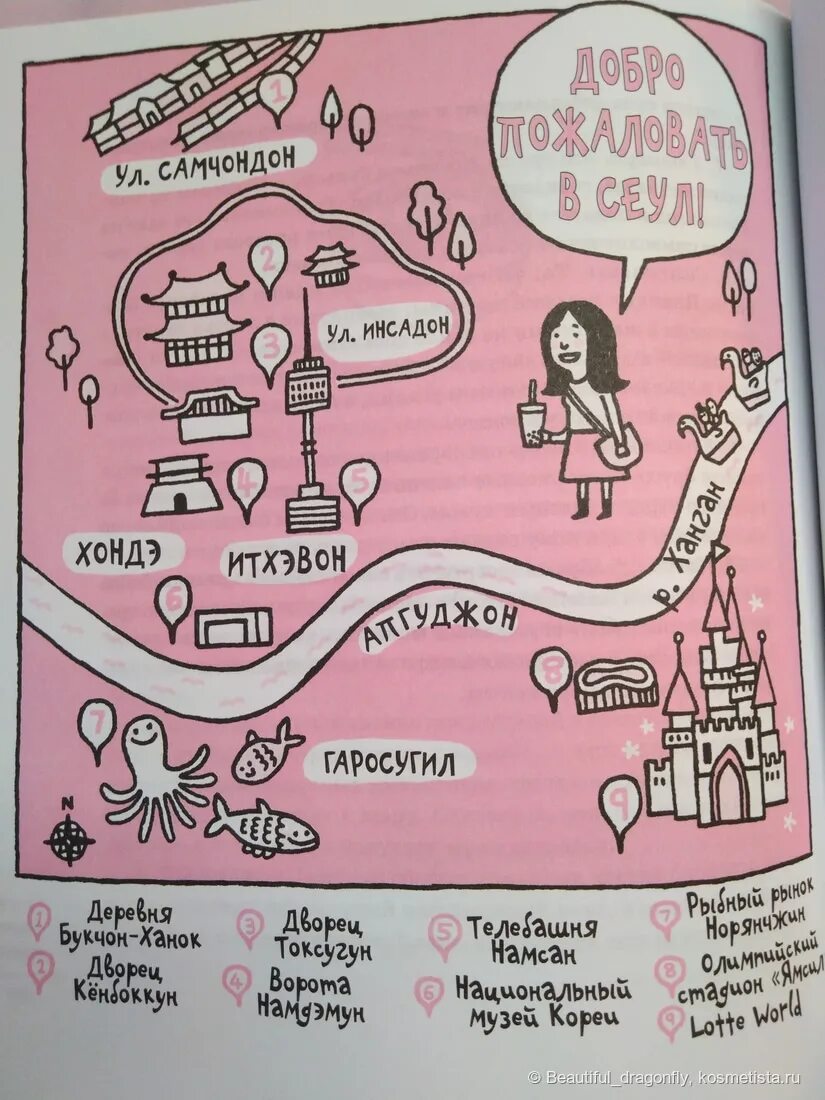 ДОБРО
ПОЖАЛОВАТЬ
В СЕУЛ!
1
УЛ. САМЧОНДОН
2
УЛ. ИНСАДОН
3
4
5
ХОНДЭ
ИТХЭВОН
р. Ханган
6
АПГУДЖОН
8
7
ГАРОСУГИЛ
9
N
1 Деревня
Букчон-Ханок
2 Дворец
Кёнбоккун
3 Дворец
Токсугун
4 Ворота
Намдэмун
5 Телебашня
Намсан
6 Национальный
музей Кореи
7 Рыбный рынок
Норянчжин
8 Олимпийский
стадион «Ямсил
9 Lotte World
© Beautiful_dragonfly, kosmetista.ru